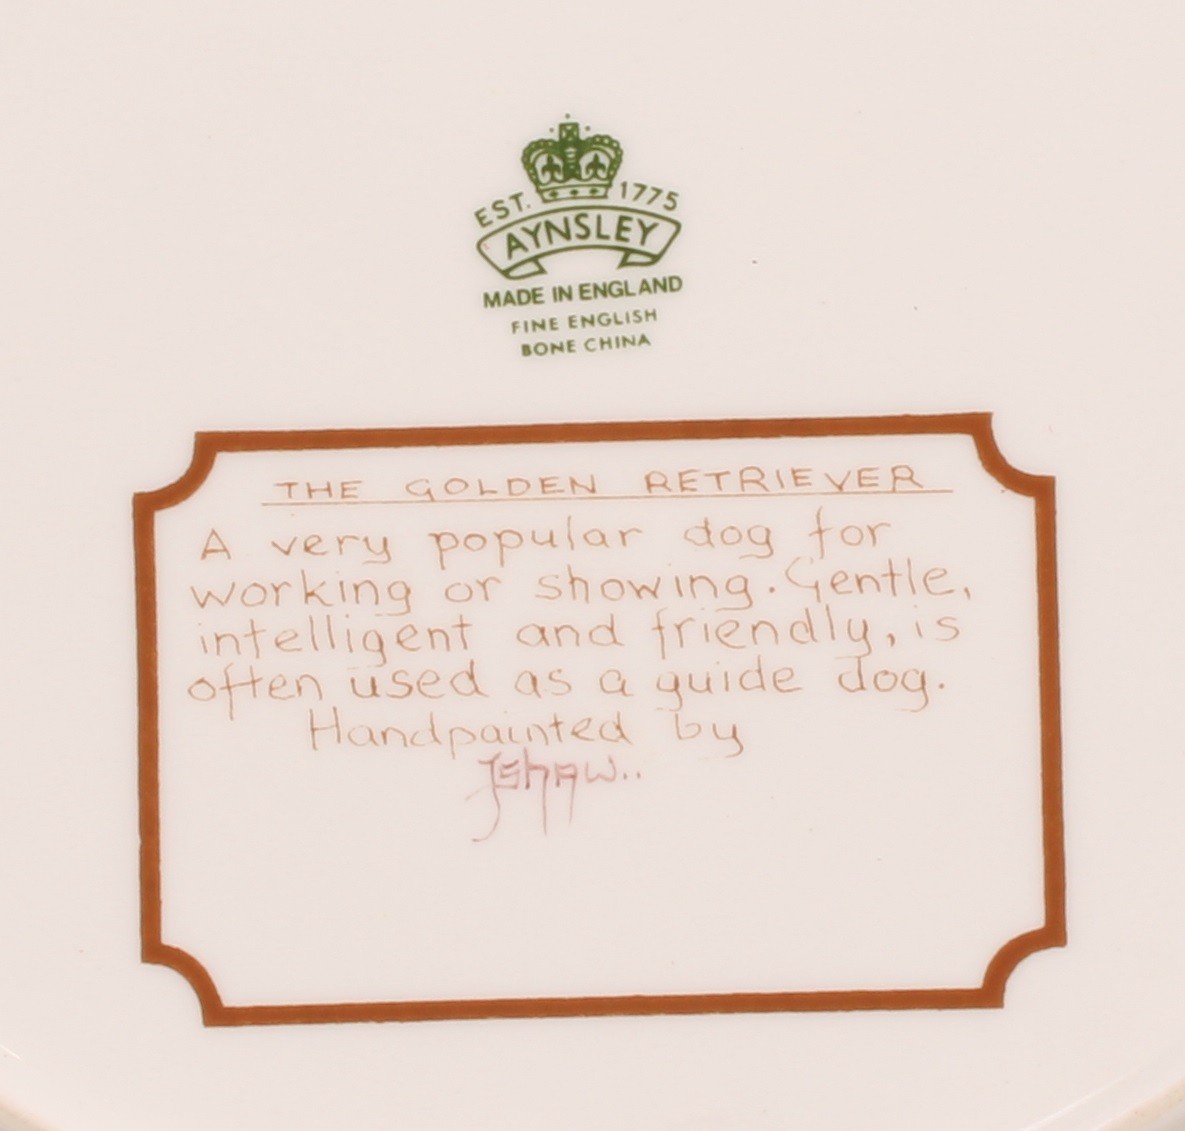 EST. 1775
AYNSLEY
MADE IN ENGLAND
FINE ENGLISH
BONE CHINA
THE GOLDEN RETRIEVER
A very popular dog for
working or showing. Gentle,
intelligent and friendly, is
often used as a guide dog.
Handpainted by
JSHAW..